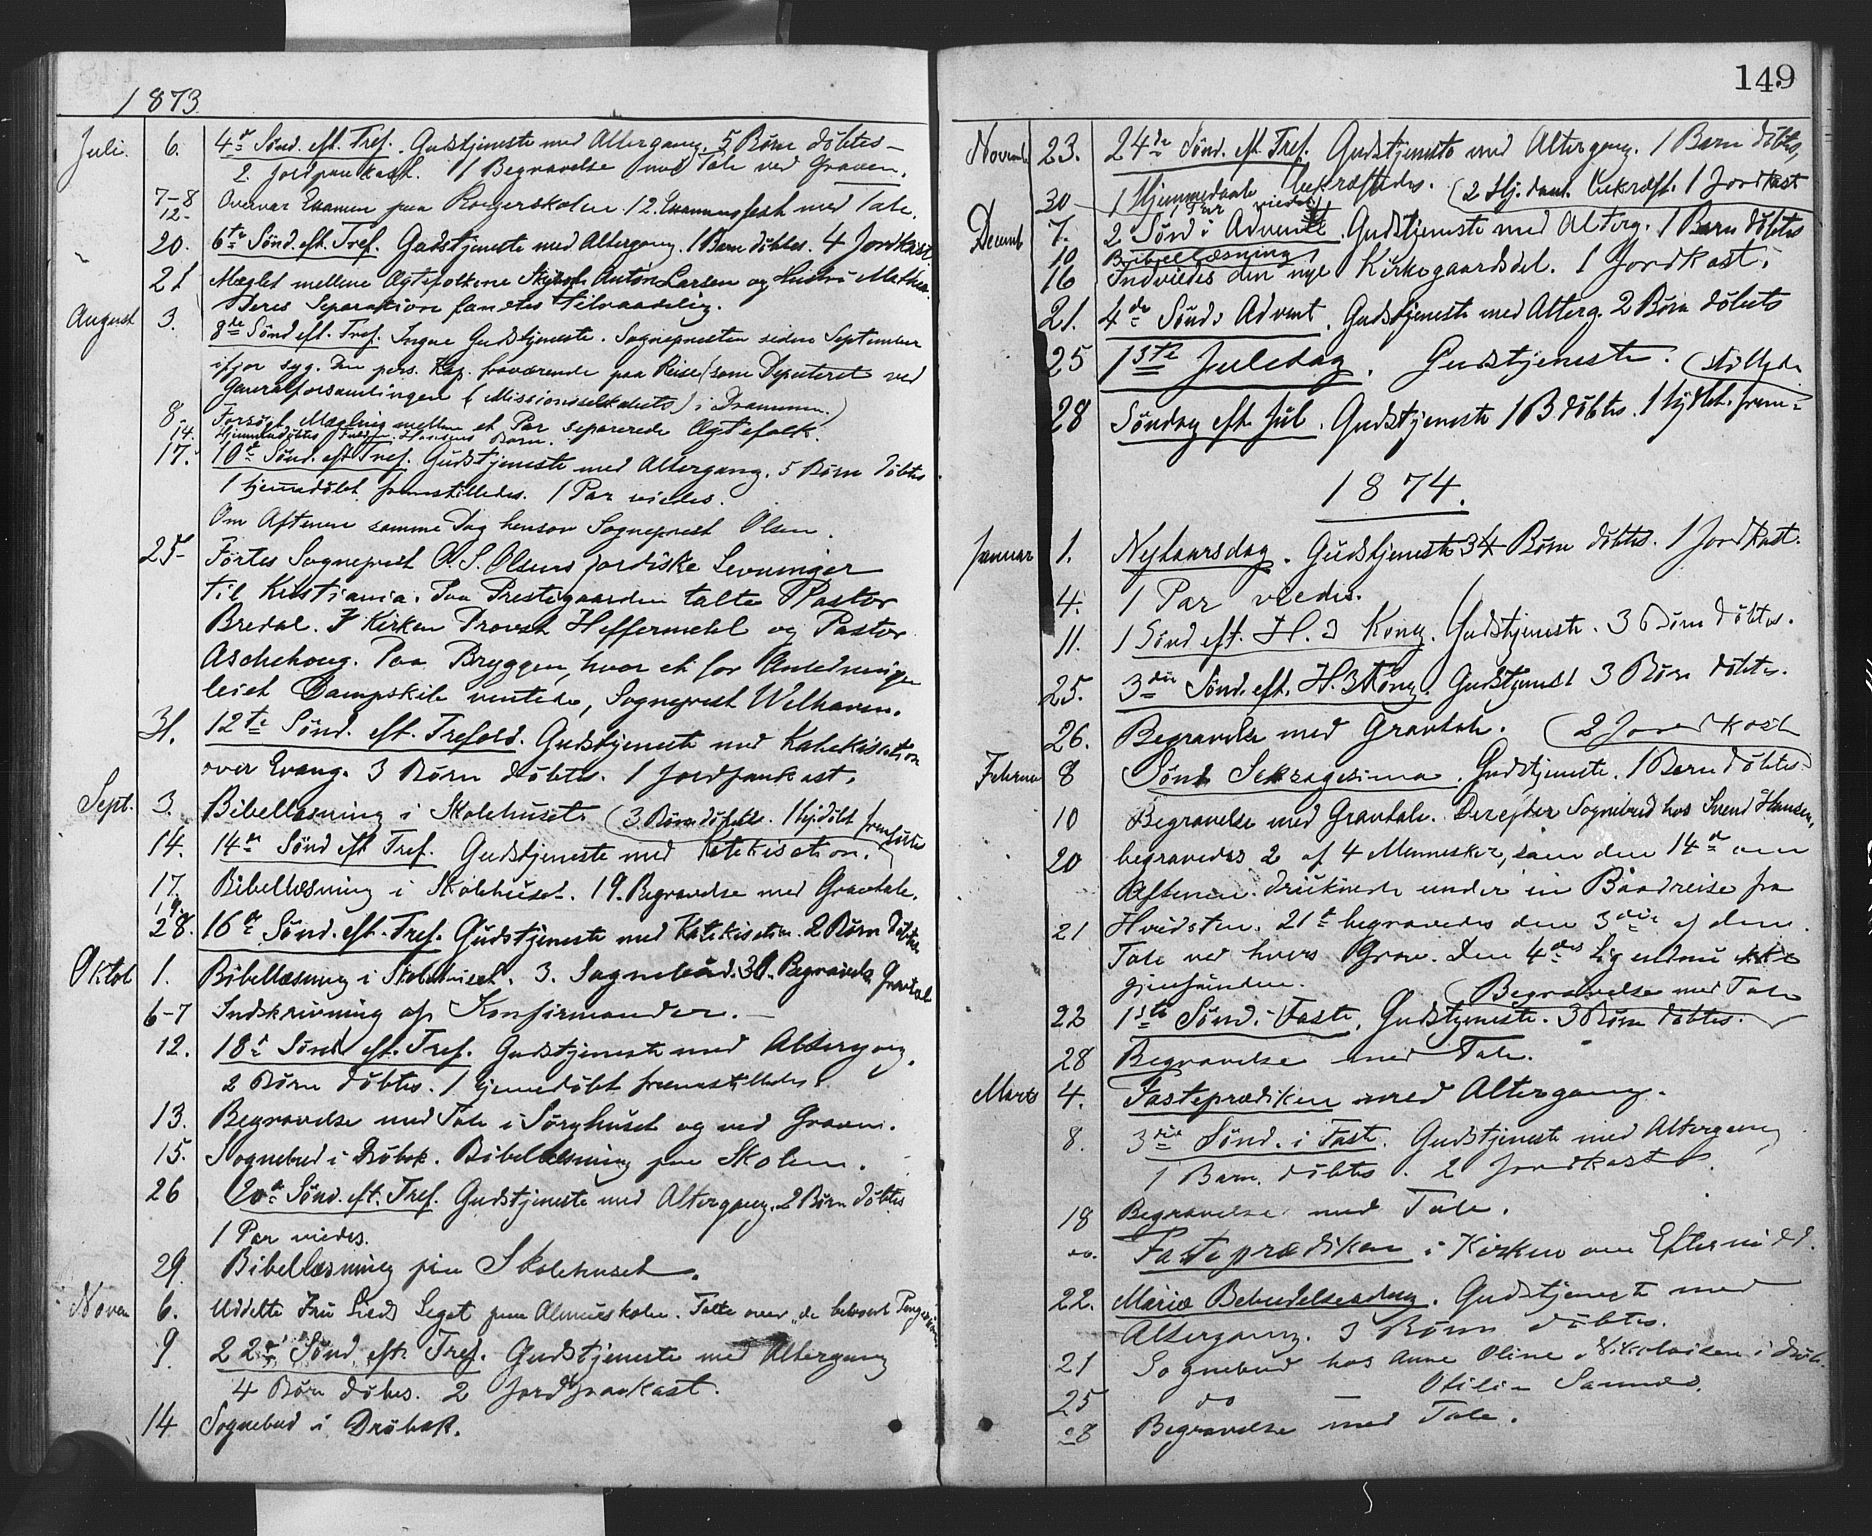 1873.
Juli. 6. 4de Sønd. eft. Tref. Gudstjeneste med Altergang. 5 Børn døbtes –
2 Jordpaakast. 1 Begravelse med Tale ved Graven.
7–8 Overvar Examen paa Borgerskolen. 12. Examensfest med Tale.
12-
20. 6te Sønd. eft. Tref. Gudstjeneste med Altergang. 1 Barn døbtes. 4 Jordkast.
21 Mæglet mellem Ægtefolkene Anton Larsen og Hustru Mathea.
Deres Separation fandtes tilraadelig.
August 3. 8de Sønd eft. Tref. Ingen Gudstjeneste. Sognepresten siden September
ifjor syg. Den pers. Kap. fraværende paa Reise (som Deputeret ved
Generalforsamlingen (Missionsselskabets) i Drammen.)
8. Forsøgt Mægling mellem et Par separerede Ægtefolk.
14. Hjemmedøbtes Hansens Barn.
17. 10de Sønd. eft Tref. Gudstjeneste med Altergang. 5 Børn døbtes
1 hjemmedøbt fremstilledes. 1 Par viedes.
Om Aftenen samme Dag hensov Sogneprest Olsen.
25- Førtes Sogneprest O. S. Olsens jordiske Levninger
til Kristiania. Paa Prestegaarden talte Pastor
Bredal. I Kirken Provst Heffermehl og Pastor
Aschehoug. Paa Bryggen, hvor et for Anledningen
leiet Dampskib ventede, Sogneprest Welhaven.
31. 12te Sønd. eft. Trefold. Gudstjeneste med Katekisation
over Evang. 3 Børn døbtes. 1 Jordpaakast.
Sept. 3. Bibellæsning i Skolehuset. (3 Børn døbtes. 1 hj.døbt fremstilte
14. 14de Sønd eft Tref. Gudstjeneste med Katekisation.
17. Bibellæsning i Skolehuset. 19. Begravelse med Gravtale.
19.
28. 16de Sønd. eft. Tref. Gudstjeneste med Katekisation. 2 Børn døbtes
Oktob 1. Bibellæsning i Skolehuset. 3. Sognebud. Begravelse Gravtale
6–7 Indskrivning af Konfirmander. –
12. 18de Sønd eft. Tref. Gudstjeneste med Altergang.
2 Børn døbtes. 1 hjemmedøbt fremstilledes.
13. Begravelse med Tale i Sørgehuset og ved Graven.
15. Sognebud i Drøbak. Bibellæsning paa Skolen.
26 20de Sønd. eft. Tref. Gudstjeneste med Altergang. 2 Børn døbtes
1 Par viedes.
29. Bibellæsning paa Skolehuset.
Novem 6. Uddelte Fru Legat paa Almueskolen. Tale over
9. 22de Sønd. eft. Tref. Gudstjeneste med Altergang
4 Børn døbtes. 2 Jordpaakast.
14 Sognebud i Drøbak.
149
Novemb 23. 24de Sønd. eft Tref. Gudstjeneste med Altergang. 1 Barn døbtes,
30 1 Hjemmedaab bekræftedes. (2 Hj. daab bekræft. 1 Jordkast
1 Par viedes
Decemb 7. 2 Sønd i Advent. Gudstjeneste med Alterg. 1 Barn døbtes
10 Bibellæsning
16 Indviedes den nye Kirkegaardsdel. 1 Jordkast.
21. 4de Sønd i Advent. Gudstjeneste med Alterg. 2 Børn døbtes
25 1ste Juledag. Gudstjeneste.
28 Søndag eft Jul. Gudstjeneste 1 B døbtes. 1 hj.døbt frem-
1874.
Januar 1. Nytaarsdag. Gudstjeneste Børn døbtes. 1 Jordkast.
4. 1 Par viedes.
11. 1 Sønd eft. H. 3 Kong. Gudstjeneste. 3 Børn døbtes.
25. 3die Sønd. eft. H. 3 Kong. Gudstjeneste 3 Børn døbtes.
26. Begravelse med Gravtale. (2 Jordkast
Februa 8 Sønd Sexagesima. Gudstjeneste. 1 Barn døbtes.
10 Begravelse med Gravtale. Derefter Sognebud hos Svend Hansen,
20 begravedes 2 af 4 Mennesker, som den 14de om
Aftenen druknede under en Baadreise fra
21 Hvidsten. 21de begravedes den 3die af dem.
Tale ved hvers Grav. Den 4des Lig endnu ikke
gjenfunden. (Begravelse med Tale
22 1ste Sønd. i Faste. Gudstjeneste. 3 Børn døbtes.
28 Begravelse med Tale.
Marts 4. Fasteprædiken med Altergang.
8. 3die Sønd. i Fast. Gudstjeneste med Altergang
1 Barn døbtes. 2 Jordkast.
18 Begravelse med Tale.
do. Fasteprædiken i Kirken om Eftermidd.
22. Mariæ Bebudelsesdag. Gudstjeneste med
Altergang. 3 Børn døbtes.
21 Sognebud hos Anne Oline Nikolaisen i Drøb.
25 do – Otilie Sannes.
28 Begravelse med Tale.